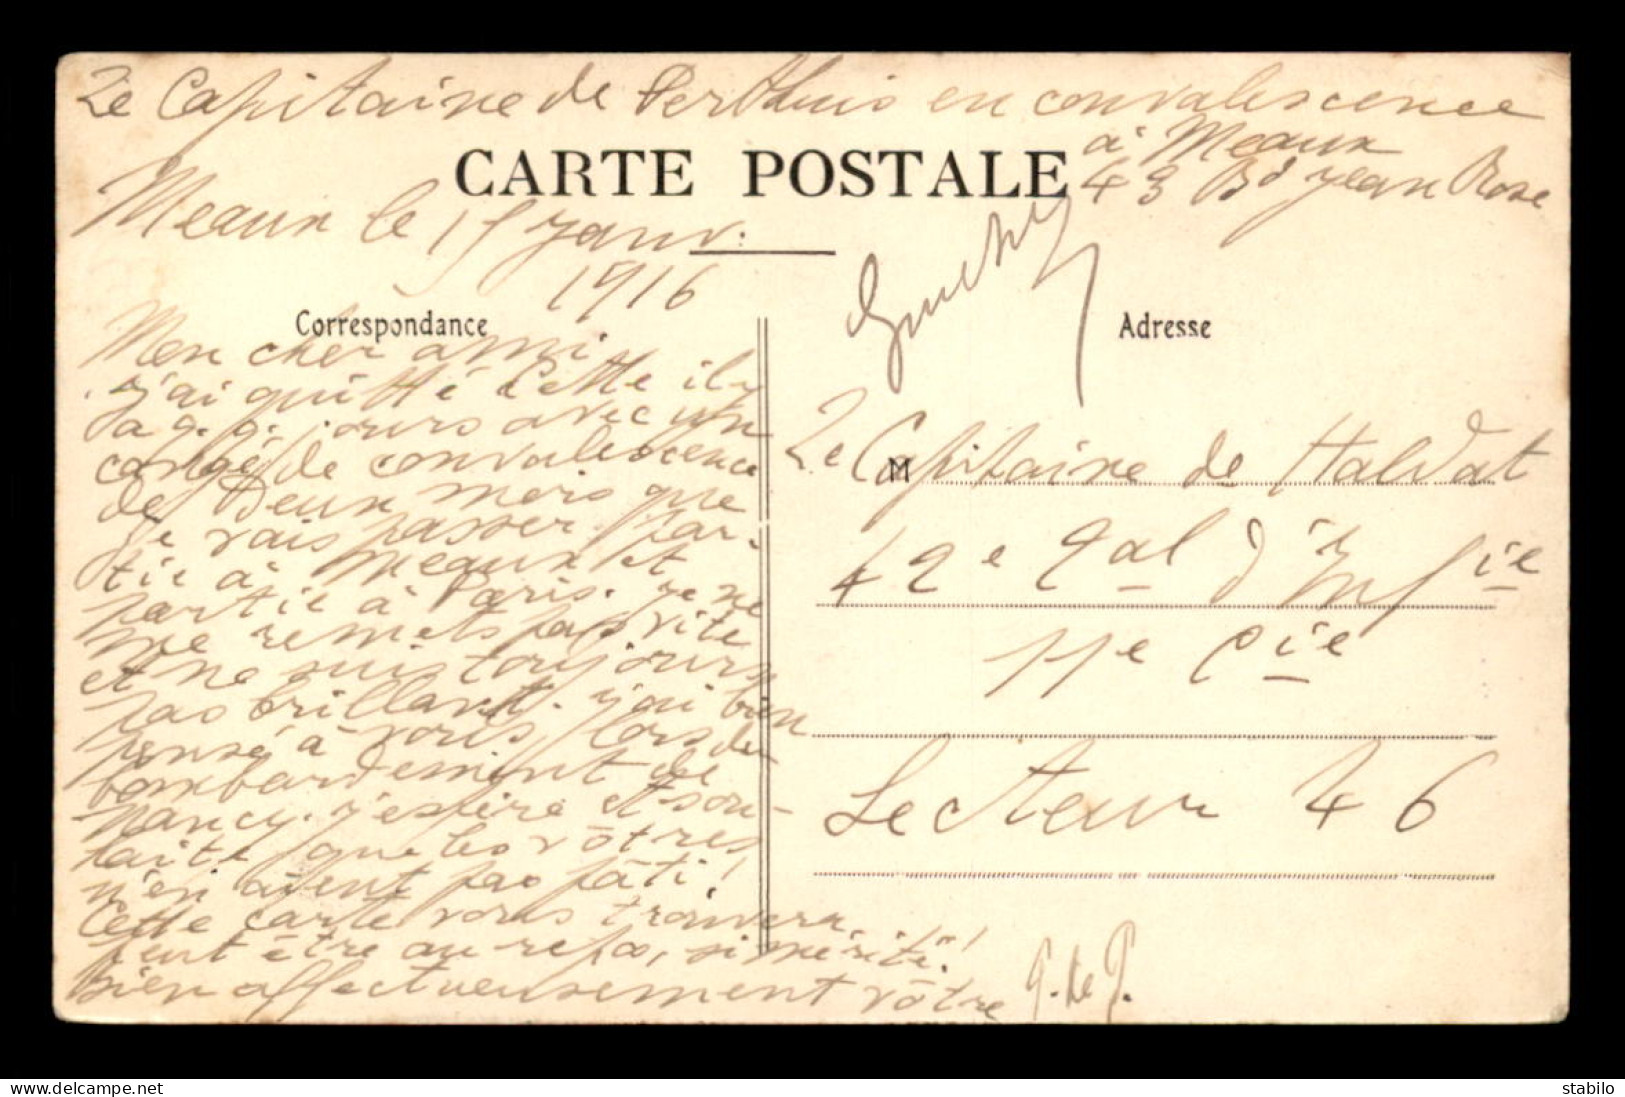 Le Capitaine de Perthuis en convalescence
à Meaux
43 Bd Jean Rose
CARTE POSTALE
Meaux le 15 Janv.
1916
Correspondance
Mon cher ami
j'ai quitté Cette il y
a q.q. jours avec un
congé de convalescence
de Deux mois que
je vais passer par-
tie à Meaux et
partie à Paris. Je ne
me remets pas vite
et ne suis toujours
pas brillant. J'ai bien
pensé à vous lors du
bombardement de
Nancy. J'espère et sou-
haite que les vôtres
n'en aient pas pâti!
Cette carte vous trouvera
peut être au repos, si mérité!
bien affectueusement vôtre
G. de P.
Adresse
M
Le Capitaine de Haldat
42e Tal d'Infie
11e Cie
Secteur 46
stabilo